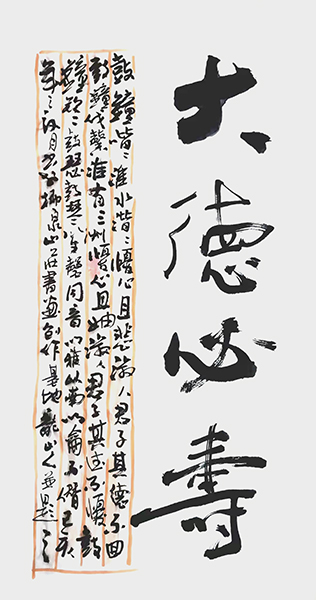 大德必壽
鼓鐘喈々淮水湝々憂心且悲淑人君子其德不回
鼓鐘伐鼛淮有三洲憂心且妯淑人君子其德不猶鼓
鐘欽々鼓瑟鼓琴笙磬同音以雅以南以籥不僭己亥
年月柳泉山莊書畫創作基地龍山人並題